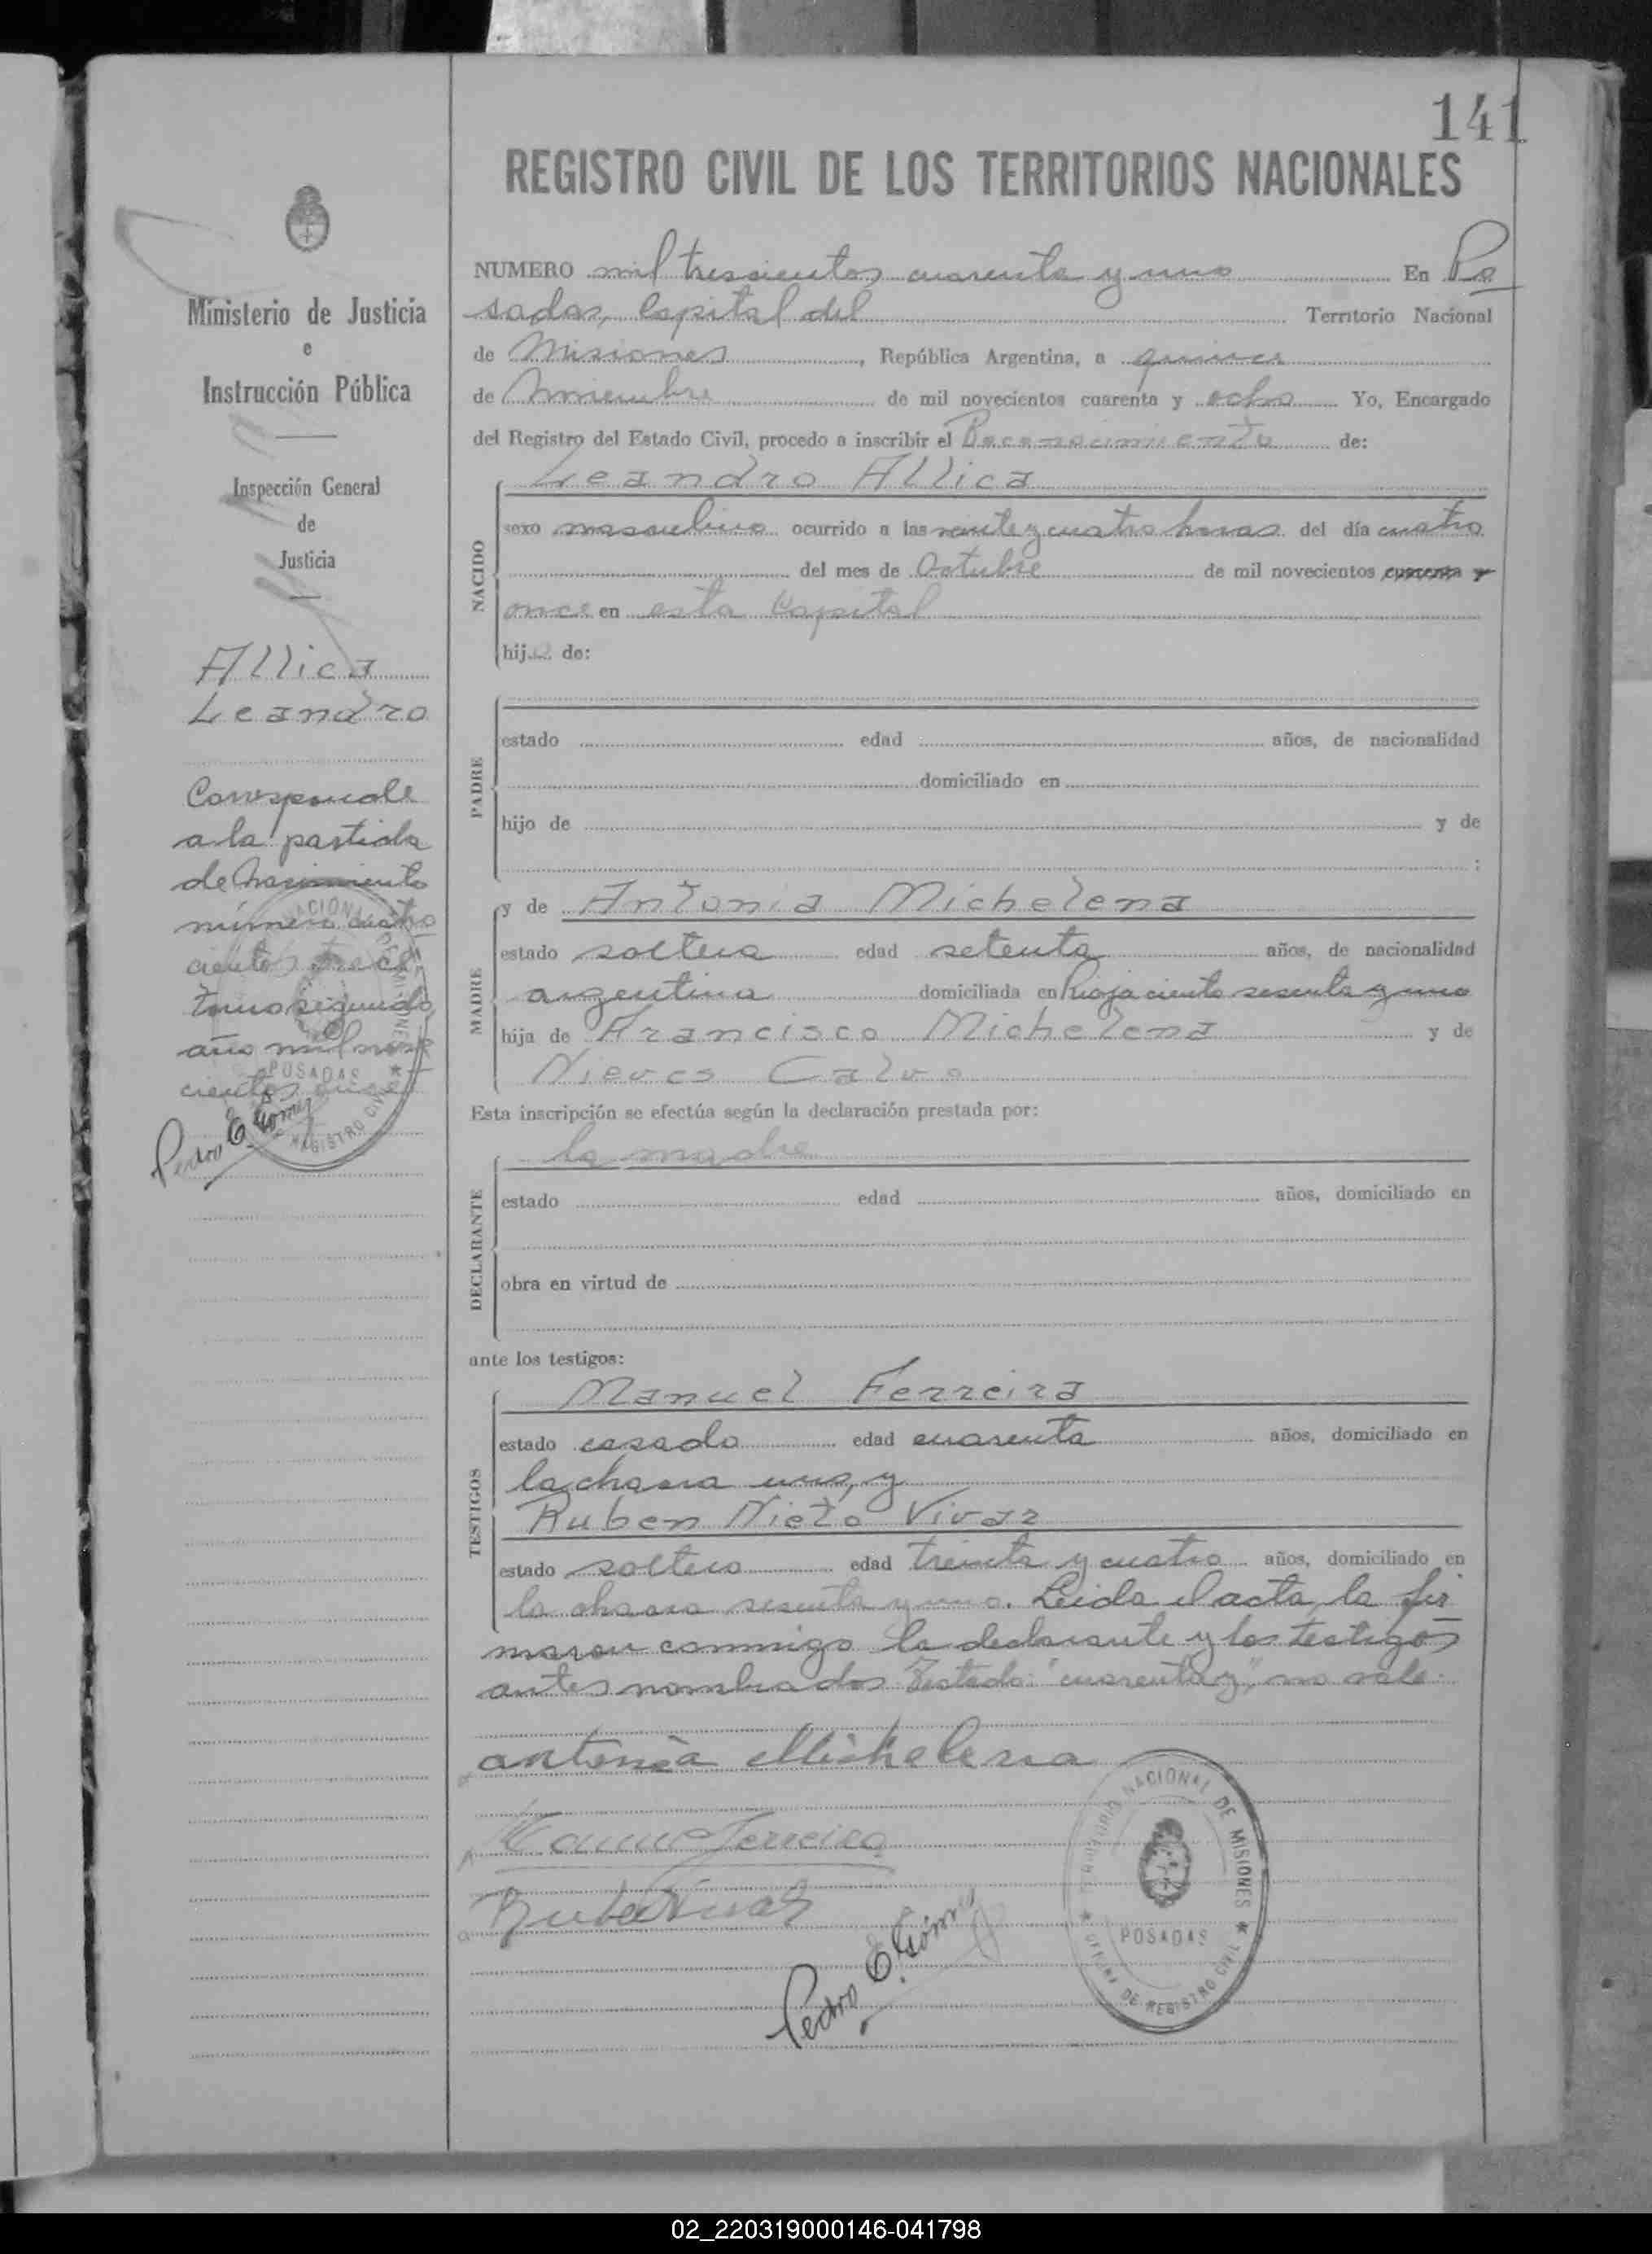 141
REGISTRO CIVIL DE LOS TERRITORIOS NACIONALES
Ministerio de Justicia
e
Instrucción Pública
Inspección General
de
Justicia
Allica
Leandro
Corresponde
a la partida
de Nacimiento
número cuatro
cientos trece
tomo segundo
año mil nove
cientos once
Pedro E. Gómez
POSADAS
REGISTRO CIVIL
NUMERO mil trescientos cuarenta y uno En Po
sadas, Capital del Territorio Nacional
de Misiones, República Argentina, a quince
de Noviembre de mil novecientos cuarenta y ocho Yo, Encargado
del Registro del Estado Civil, procedo a inscribir el Reconocimiento de:
NACIDO
Leandro Allica
sexo masculino ocurrido a las veinte y cuatro horas del día cuatro
del mes de Octubre de mil novecientos cuarenta y
once en esta Capital
hijo de:
PADRE
estado edad años, de nacionalidad
domiciliado en
hijo de y de
;
MADRE
y de Antonia Michelena
estado soltera edad setenta años, de nacionalidad
argentina domiciliada en Rioja ciento sesenta y uno
hija de Francisco Michelena y de
Nieves Calvo
Esta inscripción se efectúa según la declaración prestada por:
DECLARANTE
la madre
estado edad años, domiciliado en
obra en virtud de
ante los testigos:
TESTIGOS
Manuel Ferreira
estado casado edad cuarenta años, domiciliado en
la chacra uno, y
Ruben Nieto Vivar
estado soltero edad treinta y cuatro años, domiciliado en
la chacra sesenta y uno. Leida el acta, la fir
maron conmigo la declarante y los testigos
antes nombrados Testado: "cuarenta y", no vale.
antonia Michelena
Manuel Ferreira
Pedro E. Gómez
TERRITORIO NACIONAL DE MISIONES
POSADAS
OFICINA DE REGISTRO CIVIL
02_220319000146-041798